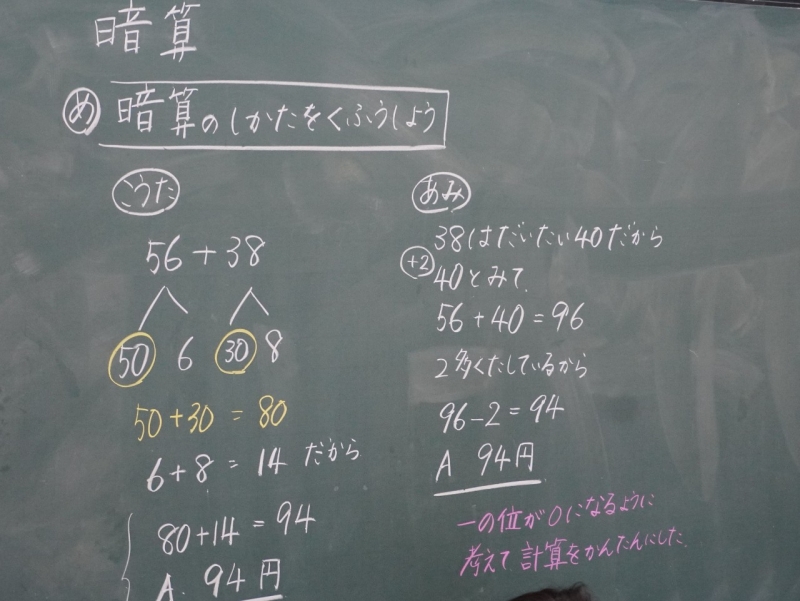 暗算
め 暗算のしかたをくふうしよう
こうた
56+38
50 6 30 8
50+30=80
6+8=14 だから
80+14=94
A. 94円
あみ
38はだいたい40だから
+2 40とみて、
56+40=96
2多くたしているから
96-2=94
A 94円
一の位が0になるように
考えて計算をかんたんにした。